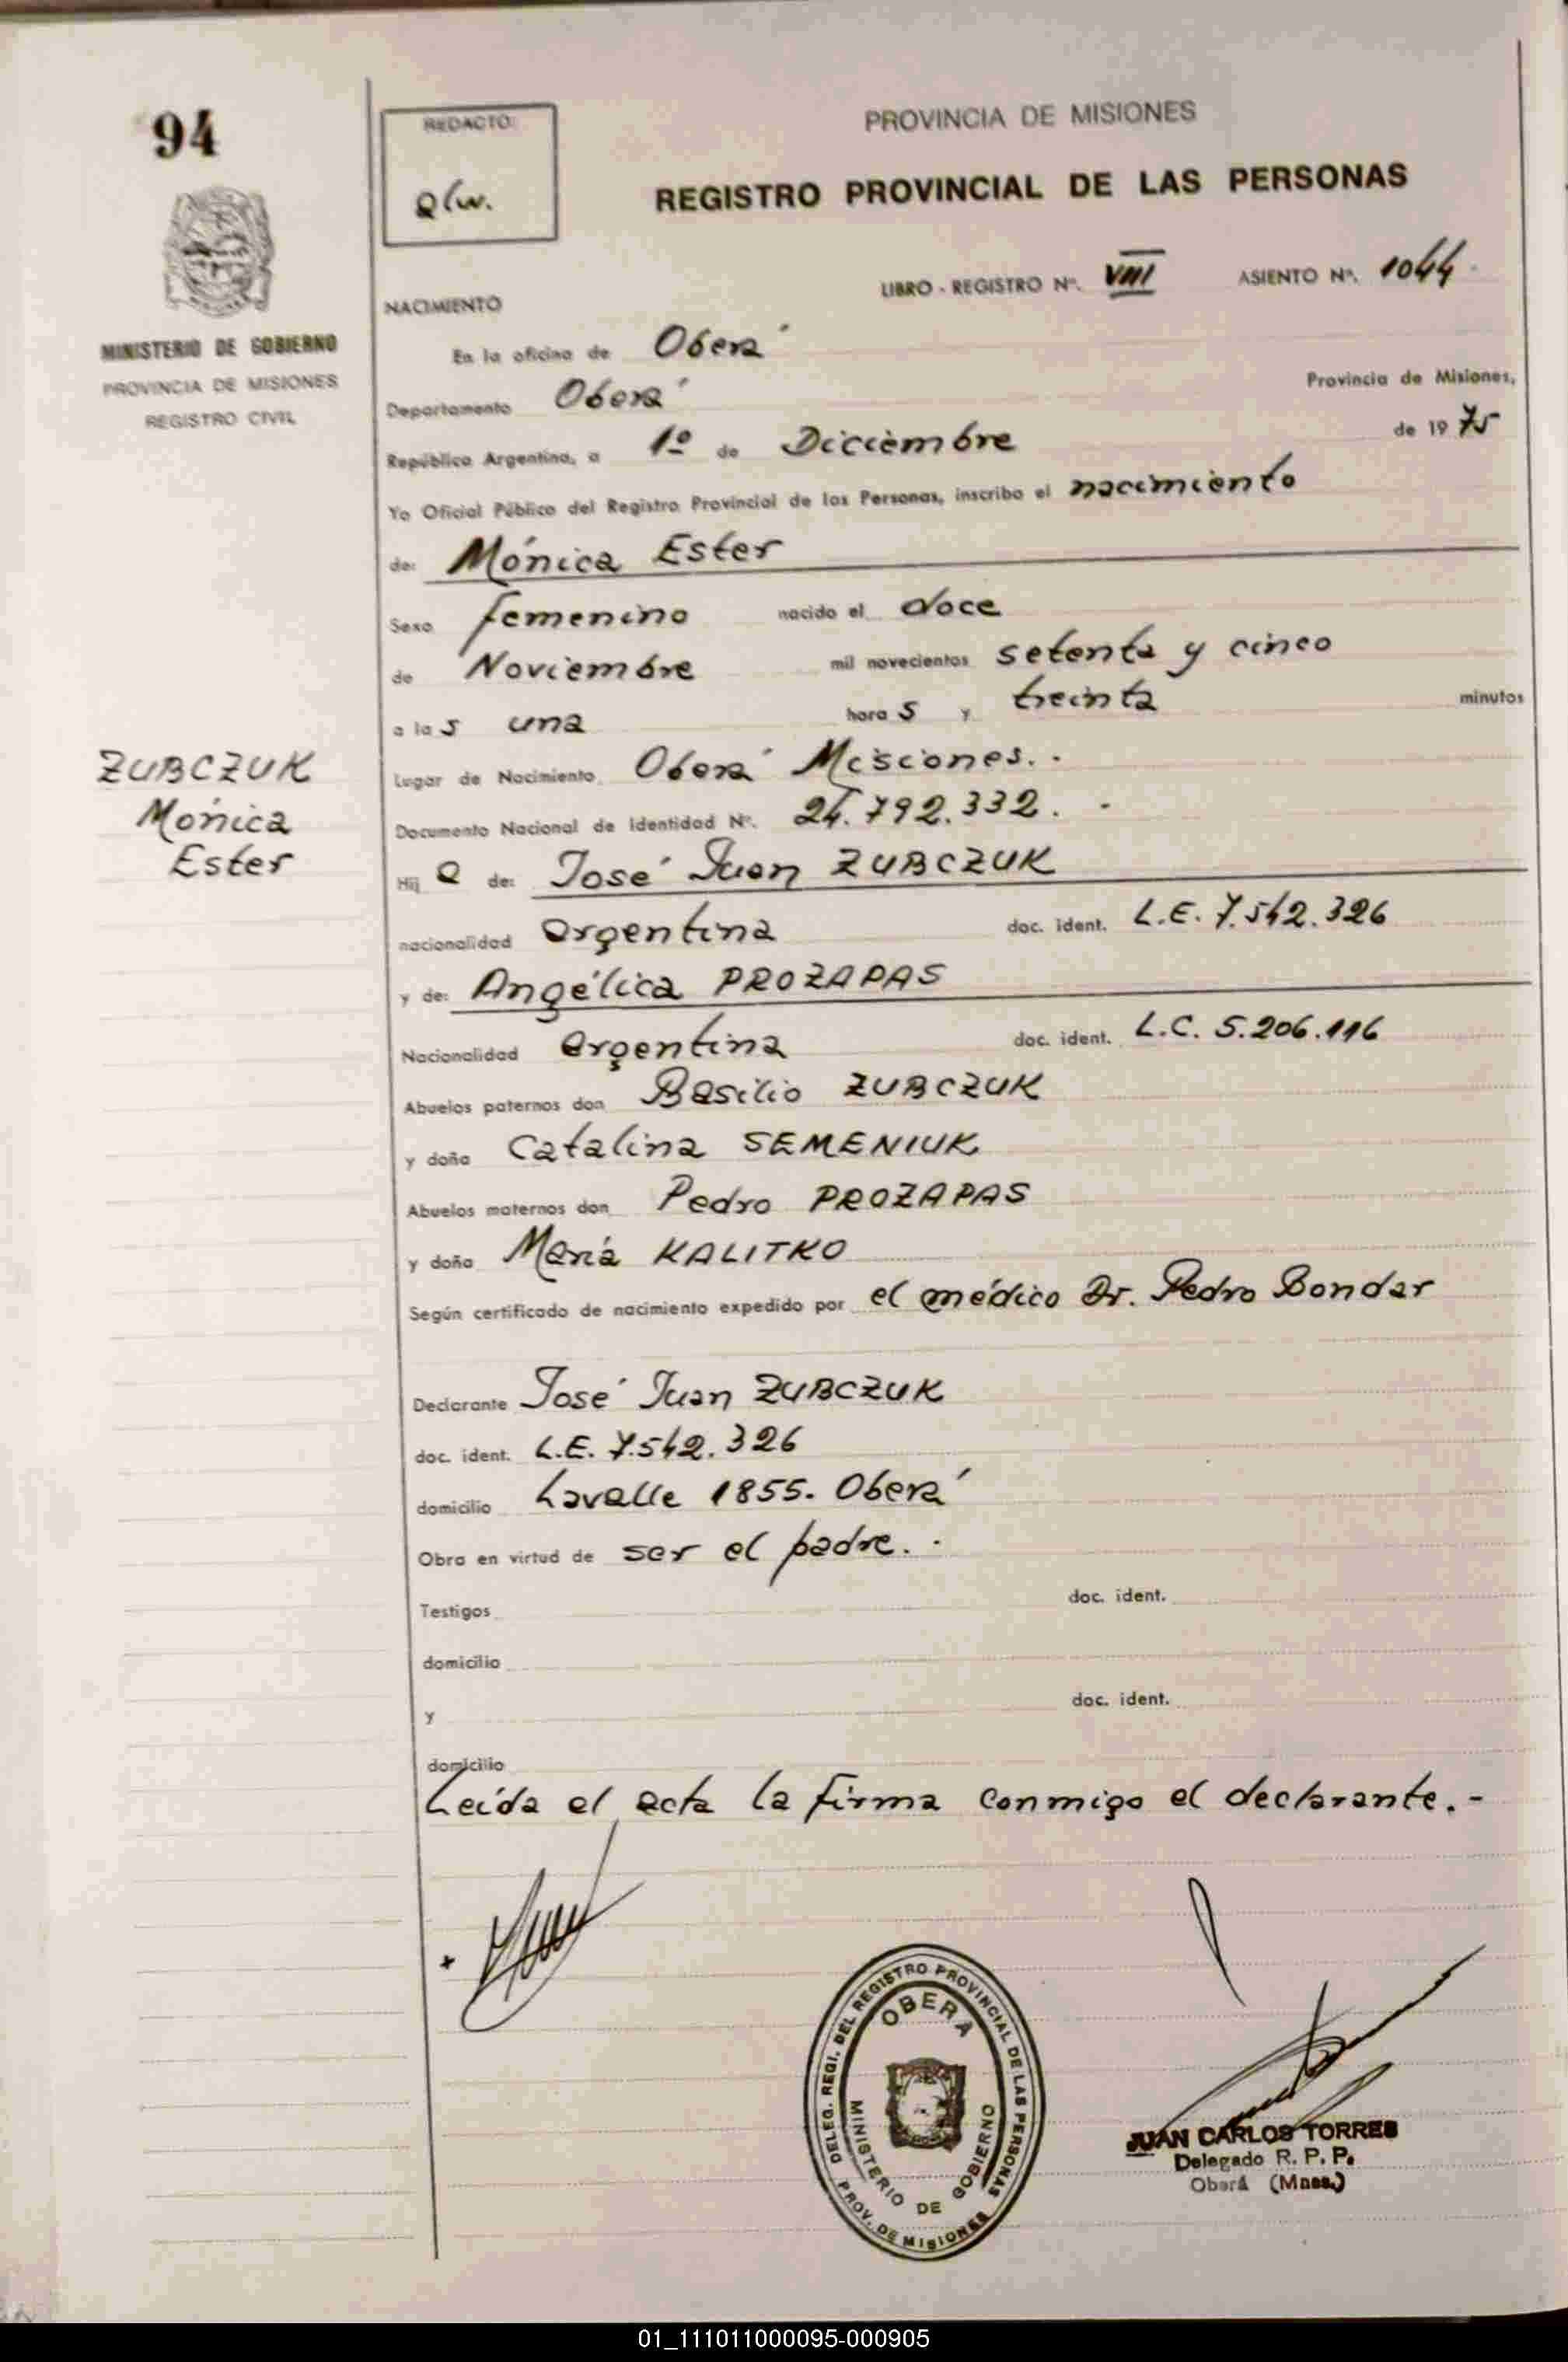 94
REDACTO:
PROVINCIA DE MISIONES
REGISTRO PROVINCIAL DE LAS PERSONAS
LIBRO - REGISTRO Nº. VIII ASIENTO Nº. 1044
NACIMIENTO
MINISTERIO DE GOBIERNO
PROVINCIA DE MISIONES
REGISTRO CIVIL
En la oficina de Oberá
Departamento Oberá Provincia de Misiones,
República Argentina, a 1º de Diciembre de 1975
Yo Oficial Público del Registro Provincial de las Personas, inscribo el nacimiento
de: Mónica Ester
Sexo femenino nacido el doce
de Noviembre mil novecientos setenta y cinco
a las una horas y treinta minutos
Lugar de Nacimiento Oberá Misiones.
ZUBCZUK
Mónica
Ester
Documento Nacional de Identidad Nº. 24.792.332.
Hija de: José Juan ZUBCZUK
nacionalidad argentina doc. ident. L.E. 7.542.326
y de: Angélica PROZAPAS
Nacionalidad argentina doc. ident. L.C. 5.206.116
Abuelos paternos don Basilio ZUBCZUK
y doña Catalina SEMENIUK
Abuelos maternos don Pedro PROZAPAS
y doña María KALITKO
Según certificado de nacimiento expedido por el médico Dr. Pedro Bondar
Declarante José Juan ZUBCZUK
doc. ident. L.E. 7.542.326
domicilio Lavalle 1855. Oberá
Obra en virtud de ser el padre.
Testigos doc. ident.
domicilio
y doc. ident.
domicilio
Leída el acta la firma conmigo el declarante.-
DELEG. REGI. DEL REGISTRO PROVINCIAL DE LAS PERSONAS
OBERA
MINISTERIO DE GOBIERNO
PROV. DE MISIONES
JUAN CARLOS TORRES
Delegado R. P. P.
Oberá (Mnes.)
01_111011000095-000905